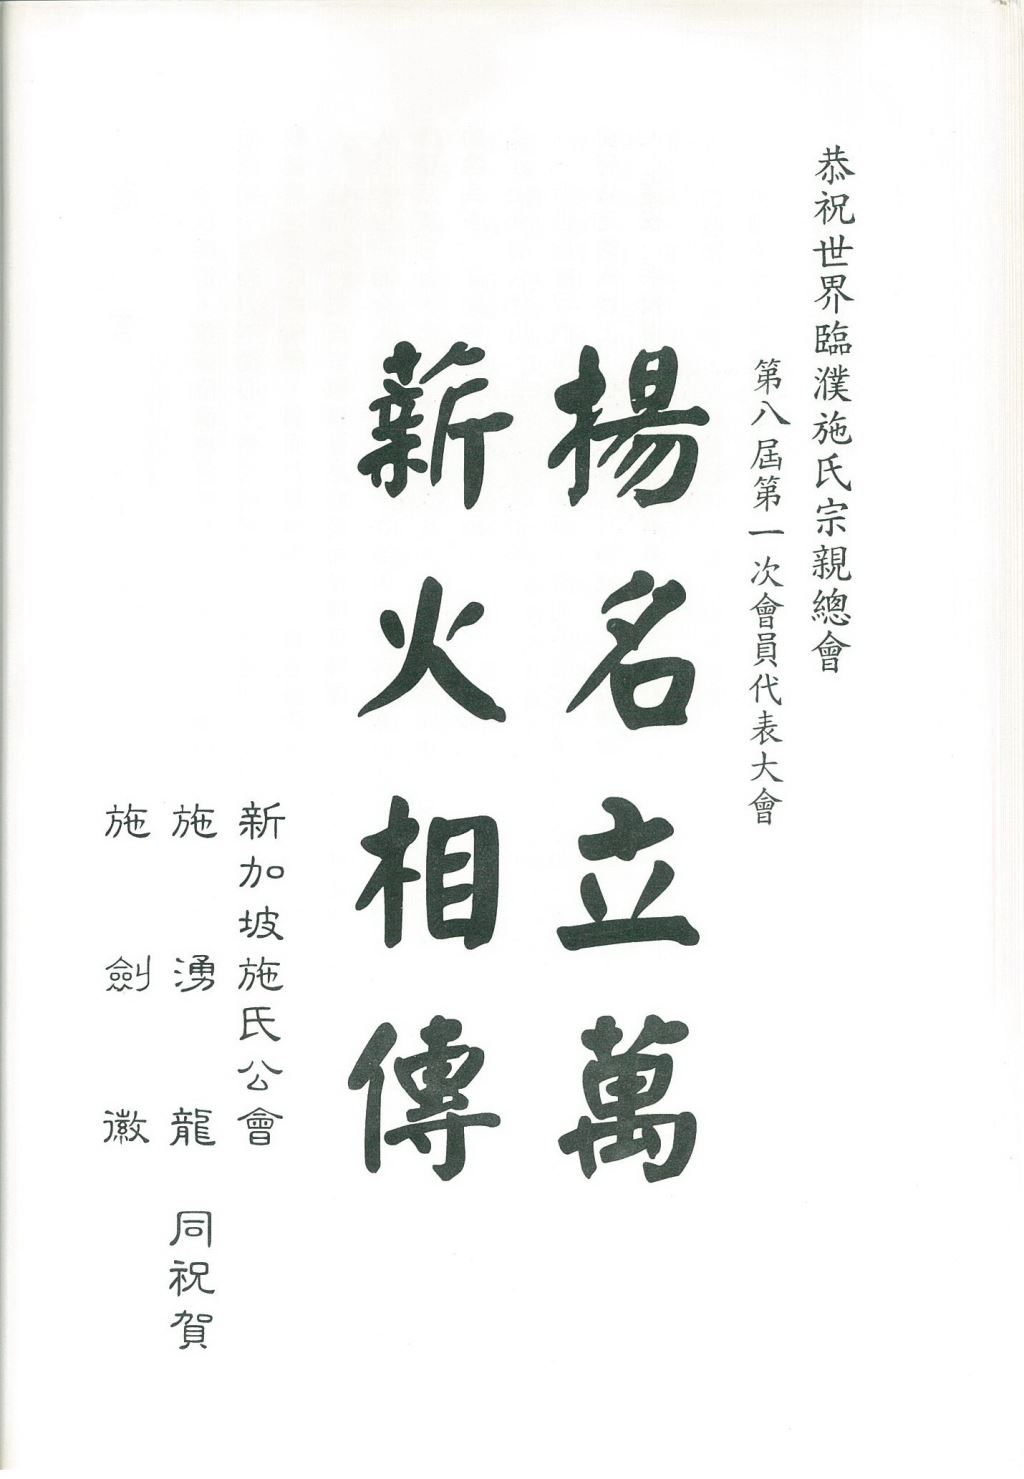 恭祝世界臨濮施氏宗親總會
第八屆第一次會員代表大會
楊名立萬
薪火相傳
新加坡施氏公會
施湧龍 同祝賀
施劍徽